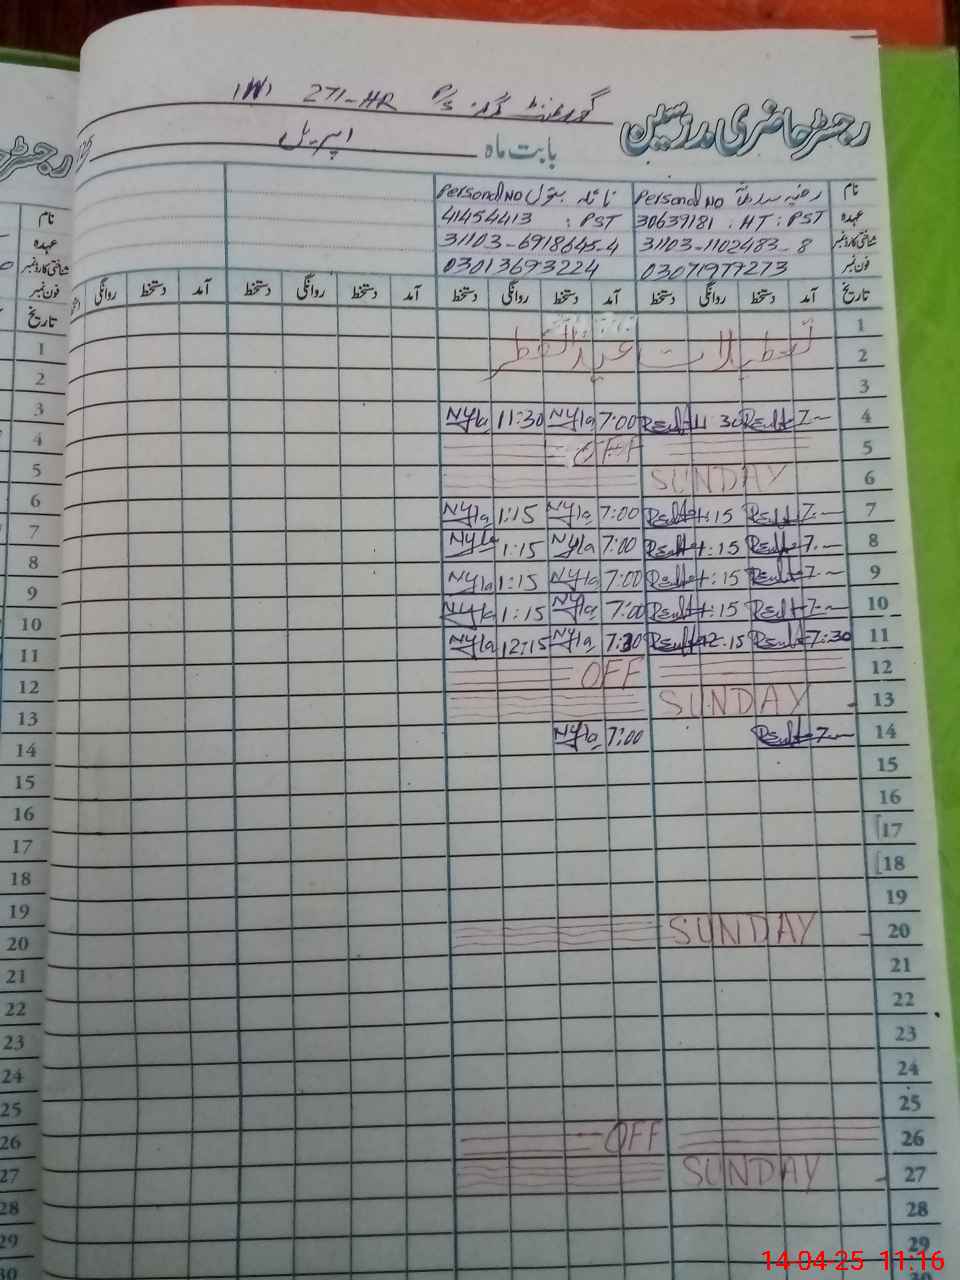 رجسٹر حاضری مدرسین گورنمنٹ گرلز P/S 271-HR
بابت ماہ اپریل
نام Personal NO Personal NO نائلہ بتول
عہدہ 30639181 : HT : PST 41454413 : PST
شناختی کارڈ نمبر 31103-1102483-8 31103-6918645-4
فون نمبر 03071977273 03013693224
تاریخ آمد دستخط روانگی دستخط آمد دستخط روانگی دستخط آمد دستخط روانگی دستخط آمد دستخط روانگی
1
2 تعطیلات عیدالفطر
3
4 7-- 11:30 7:00 Nyla 11:30 Nyla
5 OFF
6 SUNDAY
7 7:-- 1:15 7:00 Nyla 1:15 Nyla
8 7:-- 1:15 7:00 Nyla 1:15 Nyla
9 7:-- 1:15 7:00 Nyla 1:15 Nyla
10 7:-- 1:15 7:00 Nyla 1:15 Nyla
11 7:30 12:15 7:30 Nyla 12:15 Nyla
12 OFF
13 SUNDAY
14 7-- 7:00 Nyla
15
16
17
18
19
20 SUNDAY
21
22
23
24
25
26 OFF
27 SUNDAY
28
29
30
رجسٹر
نام
عہدہ
شناختی کارڈ نمبر
فون نمبر
تاریخ
1
2
3
4
5
6
7
8
9
10
11
12
13
14
15
16
17
18
19
20
21
22
23
24
25
26
27
28
29
30
14-04-25 11:16